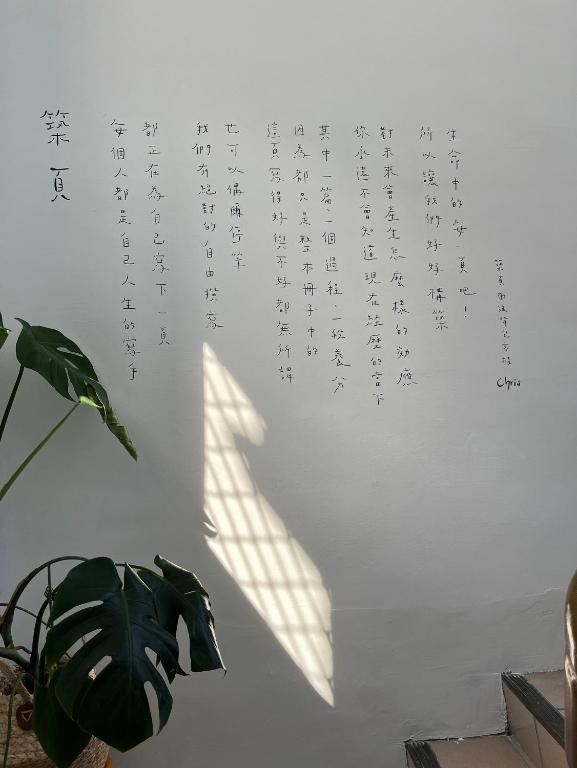 築頁
每個人都是自己人生的寫手
都正在為自己寫下一頁
我們有絕對的自由撰寫
也可以偶爾停筆
這頁寫得好與不好都無所謂
因為都只是整本冊子中的
其中一篇、一個過程、一段養分
你永遠不會知道現在經歷的當下
對未來會產生怎麼樣的効應
所以讓我們好好構築
生命中的每一頁吧！
築頁 Chris